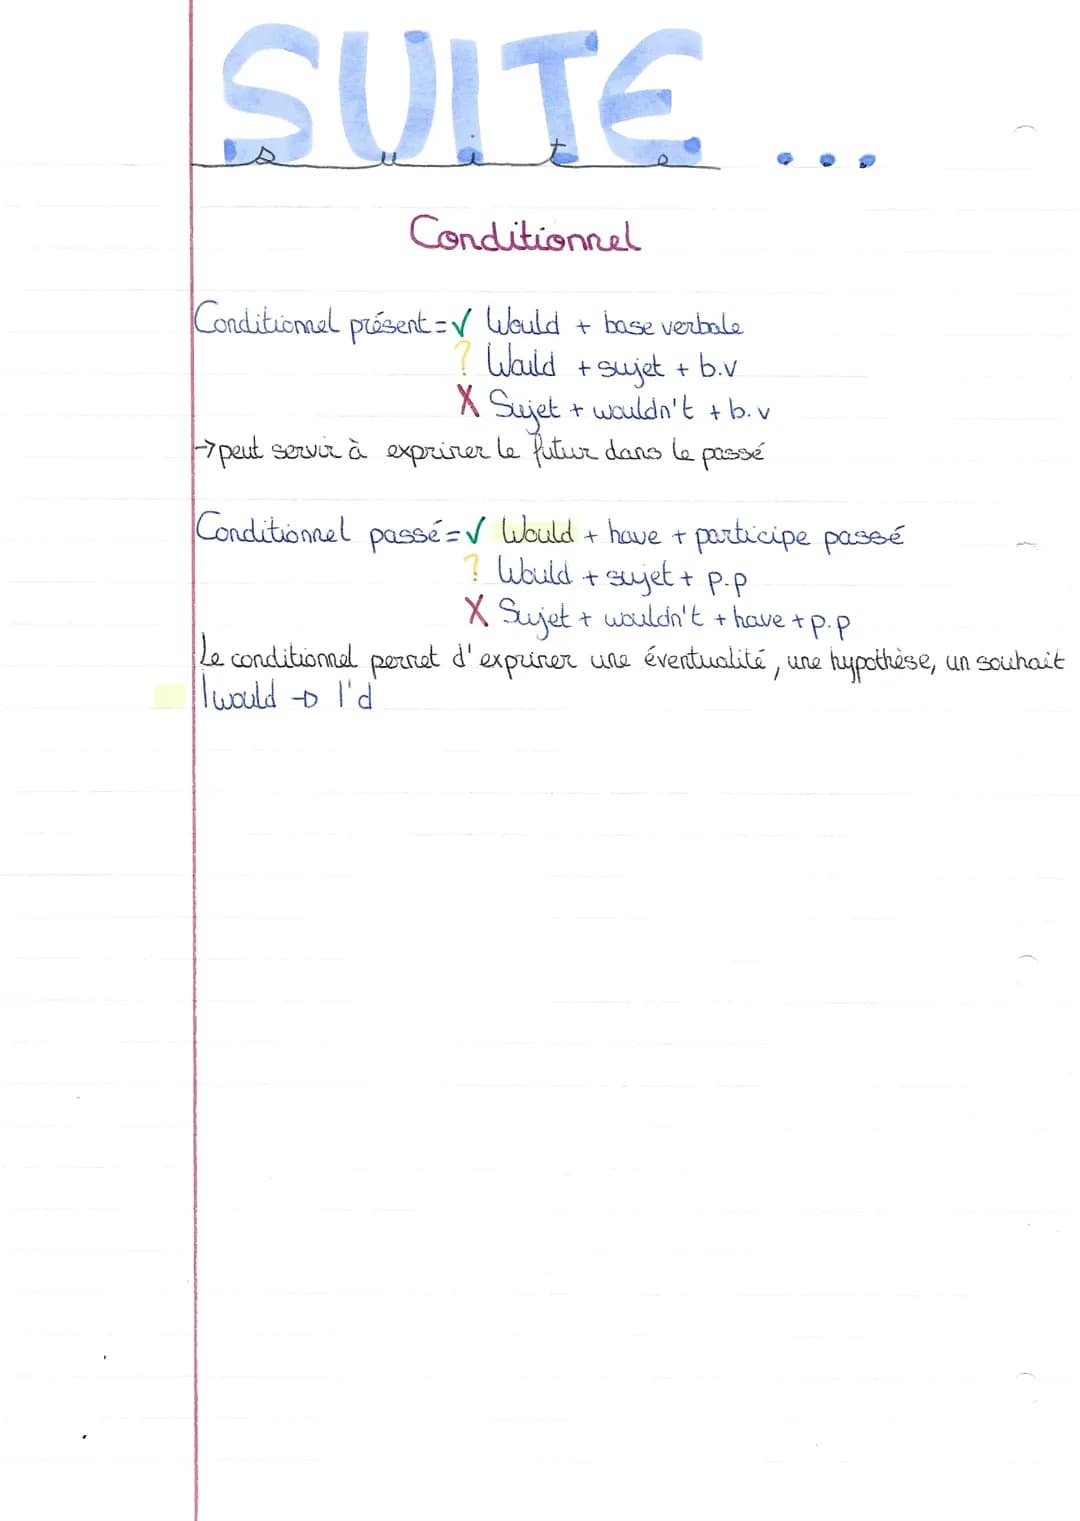 SUITE ...
suite
Conditionnel
Conditionnel présent = ✓ Would + base verbale
? Would + sujet + b.v
X Sujet + wouldn't + b.v
→ peut servir à exprimer le futur dans le passé
Conditionnel passé = ✓ Would + have + participe passé
? Would + sujet + p.p
X Sujet + wouldn't + have + p.p
Le conditionnel permet d'exprimer une éventualité, une hypothèse, un souhait
I would → I'd